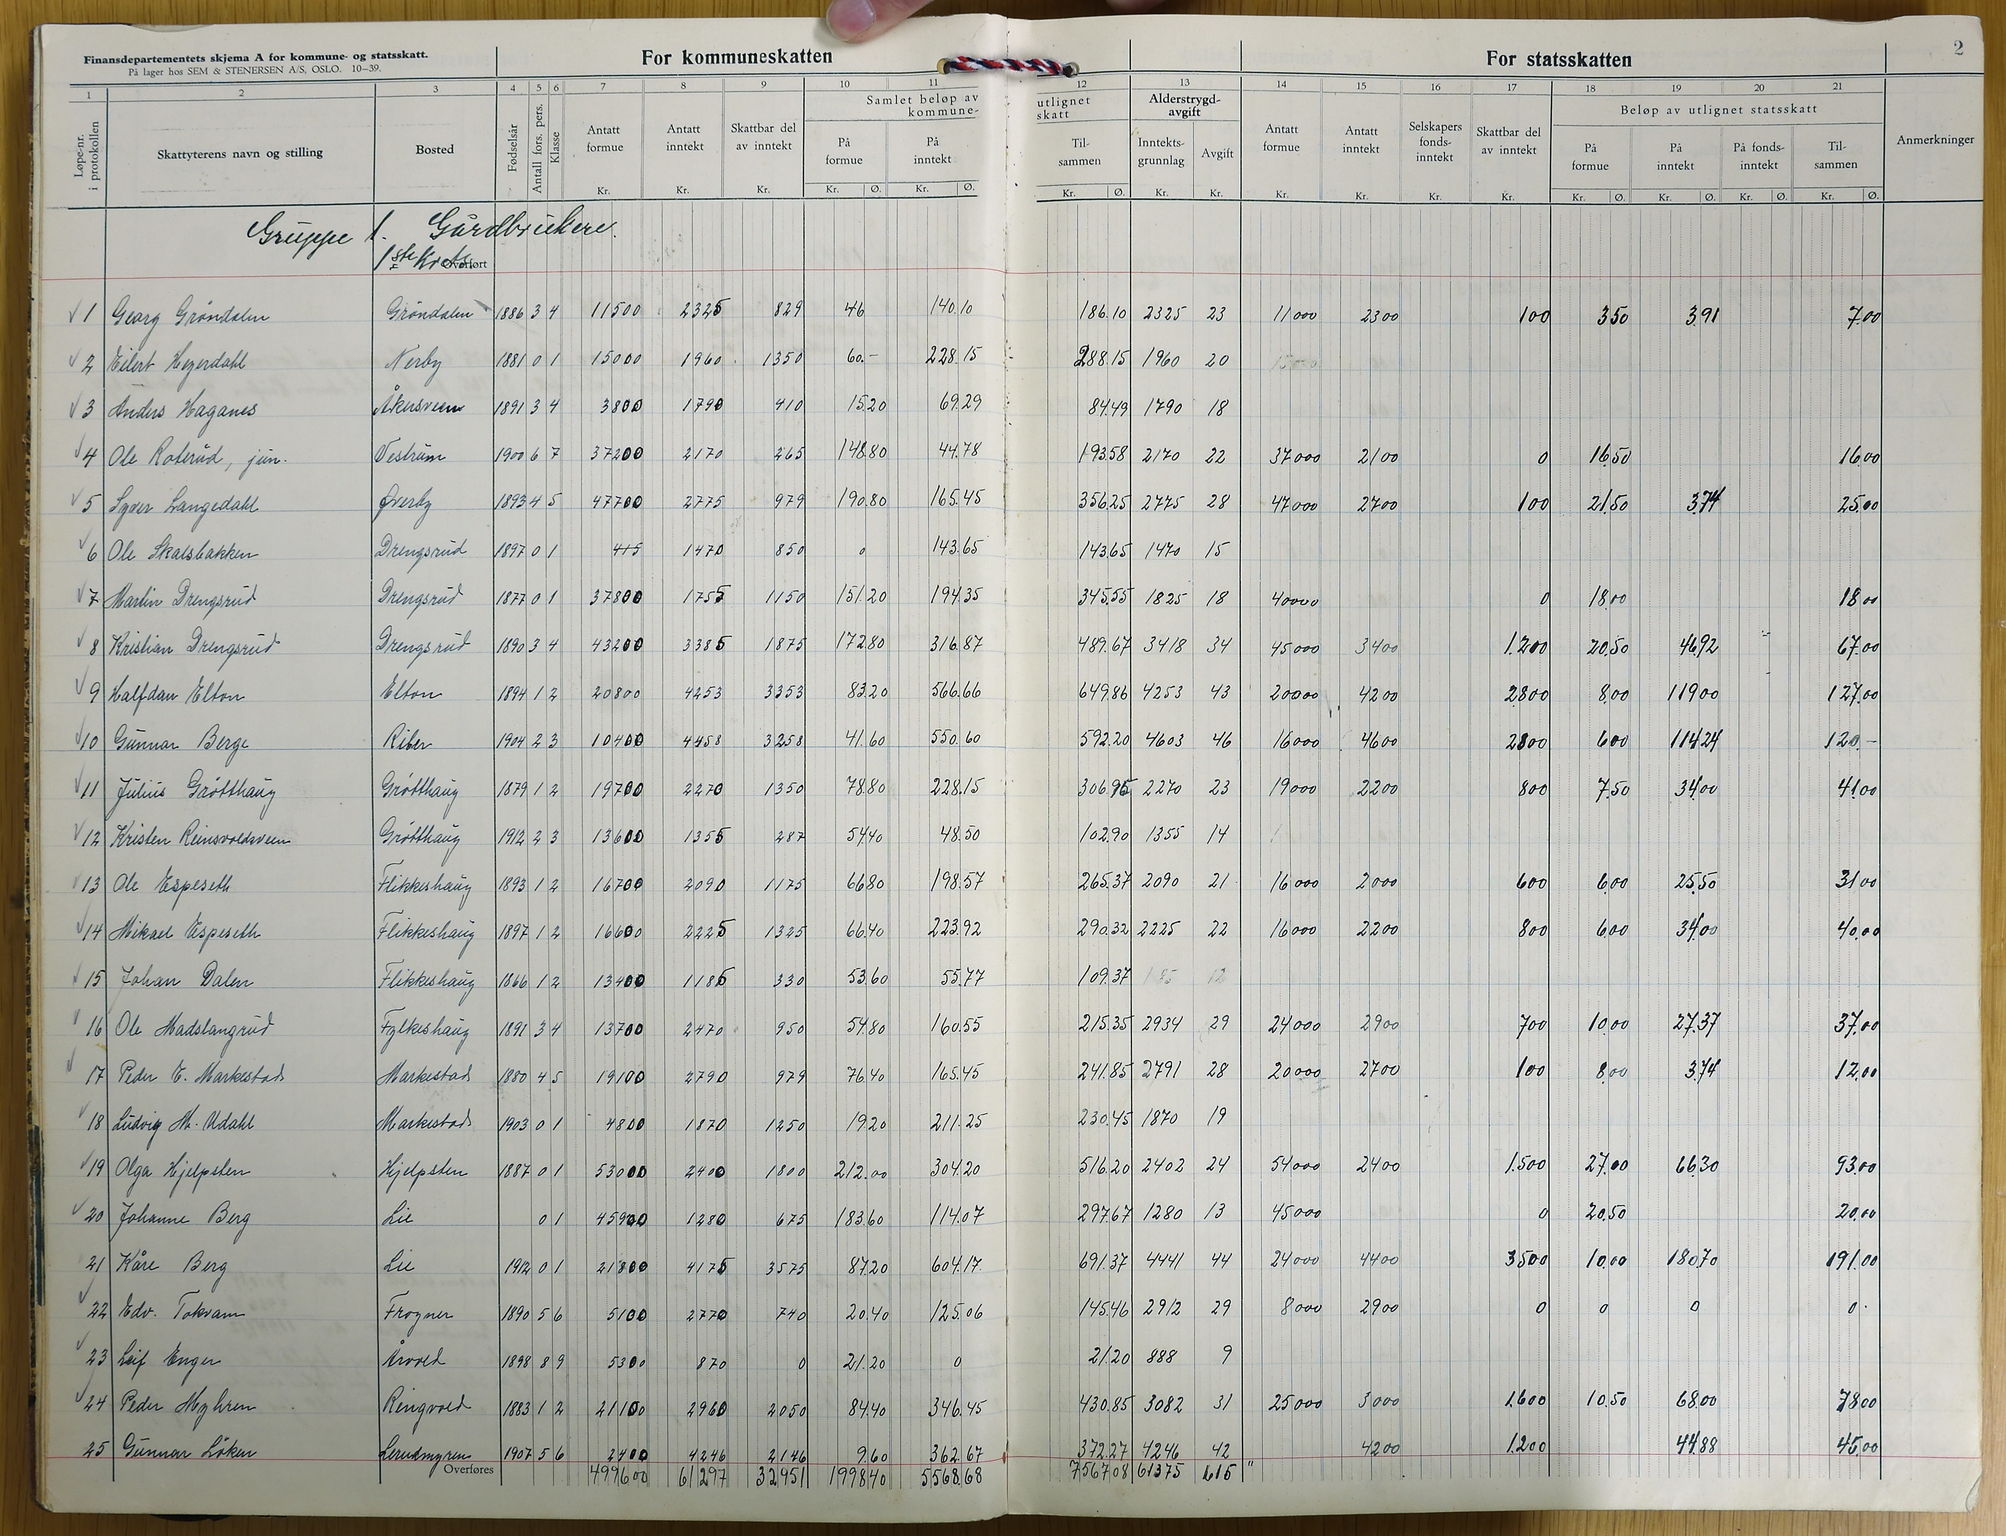 2
Finansdepartementets skjema A for kommune- og statsskatt.
På lager hos SEM & STENERSEN A/S, OSLO. 10–39.
For kommuneskatten
For statsskatten
1 2 3 4 5 6 7 8 9 10 11 12 13 14 15 16 17 18 19 20 21
Løpe-nr. i protokollen
Skattyterens navn og stilling
Bosted
Fødselsår
Antall fors. pers.
Klasse
Antatt formue Kr.
Antatt inntekt Kr.
Skattbar del av inntekt Kr.
Samlet beløp av utlignet kommune-skatt
På formue Kr. Ø.
På inntekt Kr. Ø.
Til-sammen Kr. Ø.
Alderstrygd-avgift
Inntekts-grunnlag Kr.
Avgift Kr.
Antatt formue Kr.
Antatt inntekt Kr.
Selskapers fonds-inntekt Kr.
Skattbar del av inntekt Kr.
Beløp av utlignet statsskatt
På formue Kr. Ø.
På inntekt Kr. Ø.
På fonds-inntekt Kr. Ø.
Til-sammen Kr. Ø.
Anmerkninger
Gruppe 1. Gårdbrukere.
1ste Krets
Overført
1 Georg Grøndalen Grøndalen 1886 3 4 11500 2325 829 46 140.10 186.10 2325 23 11000 2300 100 3.50 3.91 7.00
2 Eilert Heyerdahl Nerby 1881 0 1 15000 1960 1350 60.- 228.15 288.15 1960 20
3 Anders Haganes Åkersveen 1891 3 4 3800 1790 410 15.20 69.29 84.49 1790 18
4 Ole Roterud, jun. Vestrum 1900 6 7 37200 2170 265 148.80 44.78 193.58 2170 22 37000 2100 0 16.50 16.00
5 Syver Langedahl Øverby 1893 4 5 47700 2775 979 190.80 165.45 356.25 2775 28 47000 2700 100 21.50 3.74 25.00
6 Ole Skalsbakken Drengsrud 1897 0 1 415 1470 850 0 143.65 143.65 1470 15
7 Martin Drengsrud Drengsrud 1877 0 1 37800 1755 1150 151.20 194.35 345.55 1825 18 40000 0 18.00 18.00
8 Kristian Drengsrud Drengsrud 1890 3 4 43200 3385 1875 172.80 316.87 489.67 3418 34 45000 3400 1.200 20.50 46.92 67.00
9 Halfdan Elton Elton 1894 1 2 20800 4253 3353 83.20 566.66 649.86 4253 43 20000 4200 2800 8.00 119.00 127.00
10 Gunnar Berge Riber 1904 2 3 10400 4458 3258 41.60 550.60 592.20 4603 46 16000 4600 2800 6.00 114.24 120.–
11 Julius Grøtthaug Grøtthaug 1879 1 2 19700 2270 1350 78.80 228.15 306.95 2270 23 19000 2200 800 7.50 34.00 41.00
12 Kristen Reinsvoldsveen Grøtthaug 1912 2 3 13600 1355 287 54.40 48.50 102.90 1355 14
13 Ole Espeseth Flikkeshaug 1893 1 2 16700 2090 1175 66.80 198.57 265.37 2090 21 16000 2000 600 6.00 25.50 31.00
14 Mikael Espeseth Flikkeshaug 1897 1 2 16600 2225 1325 66.40 223.92 290.32 2225 22 16000 2200 800 6.00 34.00 40.00
15 Johan Dalen Flikkeshaug 1866 1 2 13400 1185 330 53.60 55.77 109.37 12
16 Ole Madslangrud Fylkeshaug 1891 3 4 13700 2470 950 54.80 160.55 215.35 2934 29 24000 2900 700 10.00 27.37 37.00
17 Peder E. Markestad Markestad 1880 4 5 19100 2790 979 76.40 165.45 241.85 2791 28 20000 2700 100 8.00 3.74 12.00
18 Ludvig M. Udahl Markestad 1903 0 1 4800 1870 1250 19.20 211.25 230.45 1870 19
19 Olga Hjelpsten Hjelpsten 1887 0 1 53000 2400 1800 212.00 304.20 516.20 2402 24 54000 2400 1.500 27.00 66.30 93.00
20 Johanne Berg Lie 0 1 45900 1280 675 183.60 114.07 297.67 1280 13 45000 0 20.50 20.00
21 Kåre Berg Lie 1912 0 1 21800 4175 3575 87.20 604.17 691.37 4441 44 24000 4400 3500 10.00 180.70 191.00
22 Edv. Tokvam Frogner 1890 5 6 5100 2770 740 20.40 125.06 145.46 2912 29 8000 2900 0 0 0 0.
23 Leif Enger Årvold 1898 8 9 5300 870 0 21.20 0 21.20 888 9
24 Peder Myhren Ringvold 1883 1 2 21100 2960 2050 84.40 346.45 430.85 3082 31 25000 3000 1.600 10.50 68.00 78.00
25 Gunnar Løken Lerudmyren 1907 5 6 2400 4246 2146 9.60 362.67 372.27 4246 42 4200 1.200 44.88 45.00
Overføres 499600 61297 32951 1998.40 5568.68 7567.08 61375 615 "